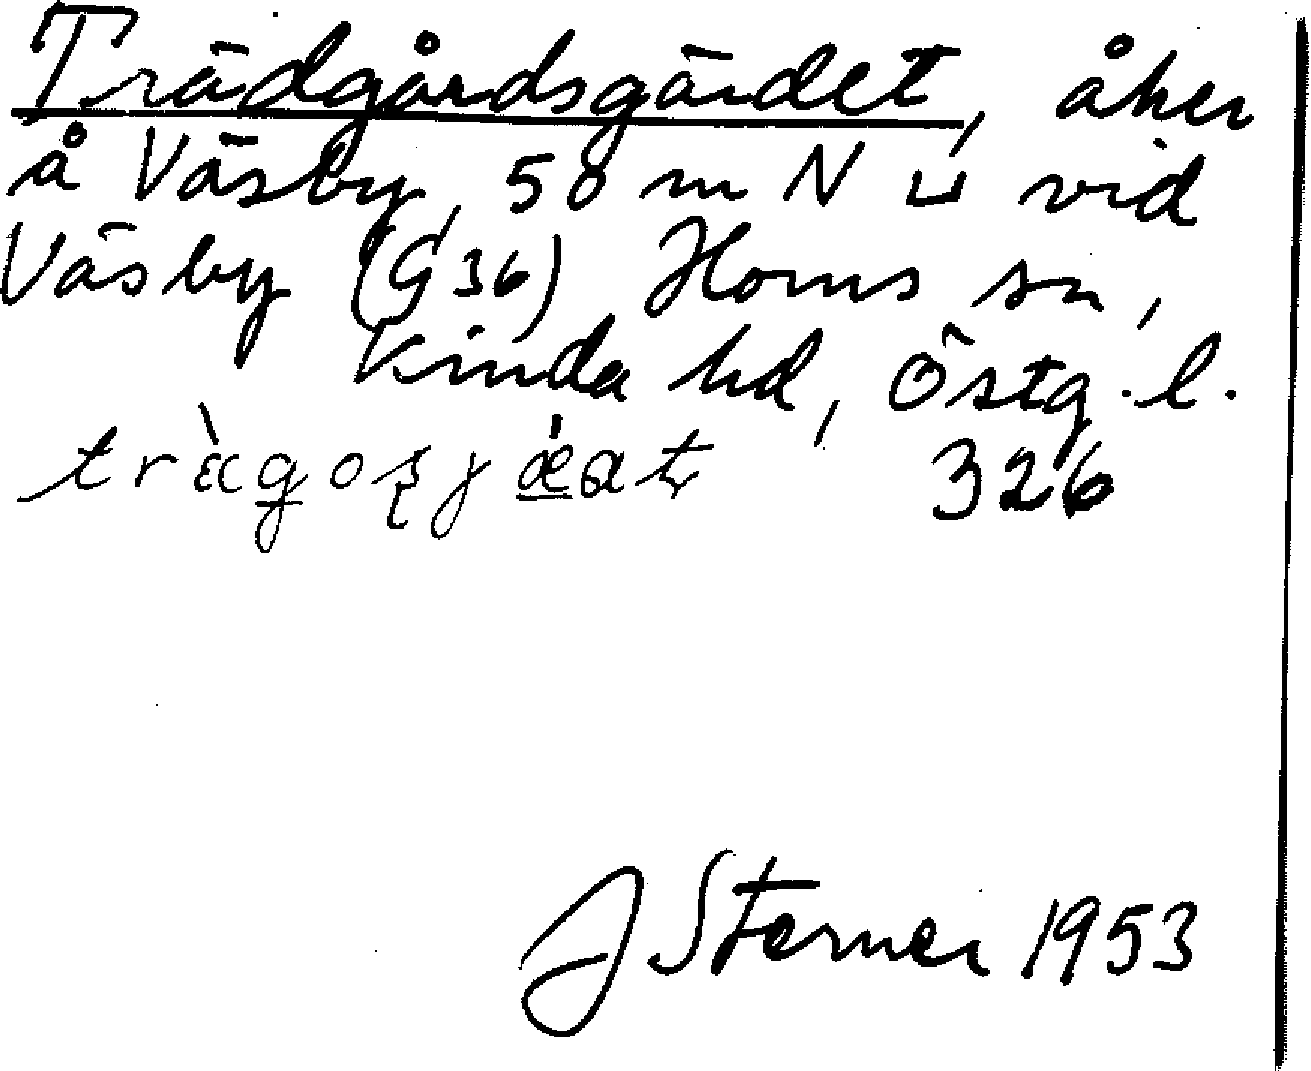 Trädgårdsgärdet, åker
å Väsby, 50 m N ⊔ vid
Väsby (G36) Horns sn,
Kinda hd, Östg.l.
326
J Sterner 1953